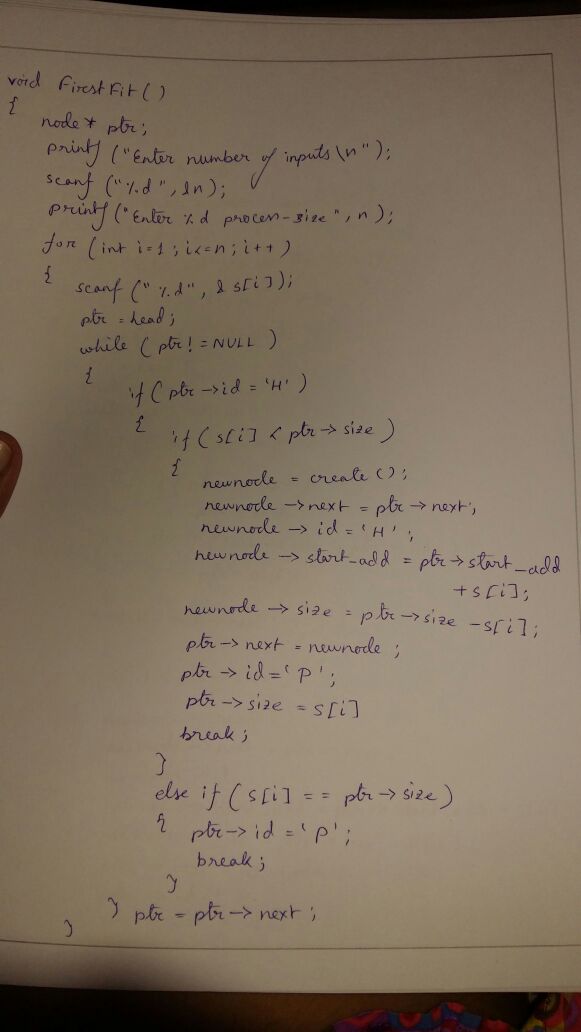 void FirstFit()
{
node* ptr;
printf ("Enter number of inputs\n");
scanf ("%d", &n);
printf ("Enter %d process-size", n);
for (int i=1; i<=n; i++)
{
scanf ("%d", & s[i]);
ptr = head;
while (ptr != NULL )
{
if (ptr->id = 'H')
{
if (s[i] < ptr->size)
{
newnode = create();
newnode ->next = ptr->next;
newnode -> id = 'H' ;
newnode -> start_add = ptr->start_add
+ s[i];
newnode -> size = ptr->size -s[i];
ptr-> next = newnode ;
ptr -> id = 'P';
ptr -> size = s[i]
break;
}
else if (s[i] == ptr->size)
{
ptr-> id = 'P';
break;
}
} ptr = ptr-> next ;
}